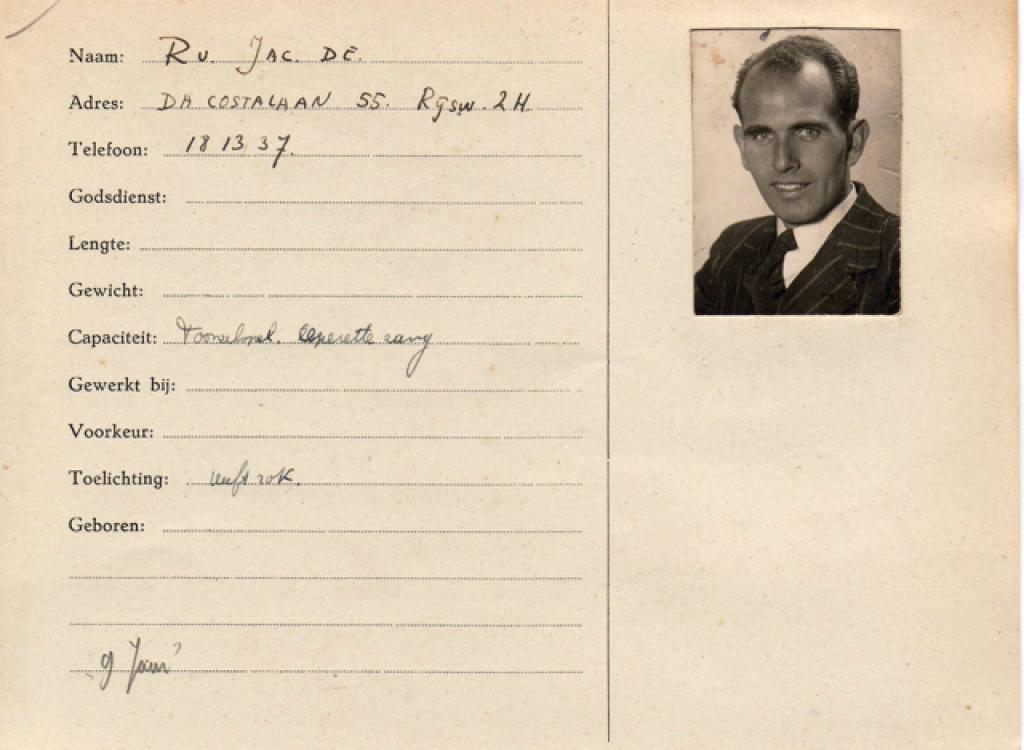 Naam: Ru. Jac. de.
Adres: Da Costalaan 55. Rijsw. Z.H.
Telefoon: 18 13 37.
Godsdienst:
Lengte:
Gewicht:
Capaciteit: Operette zang
Gewerkt bij:
Voorkeur:
Toelichting: heeft rok.
Geboren:
9